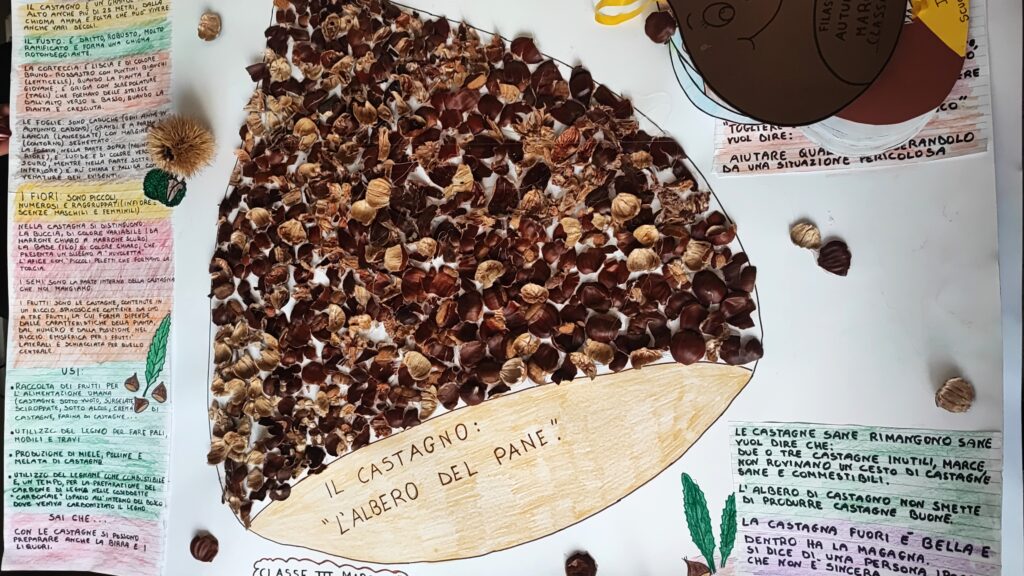 IL CASTAGNO È UN GRANDE
ALTO ANCHE PIÙ DI 25 METRI, DALLA
CHIOMA AMPIA E FOLTA CHE PUÒ VIVERE
ANCHE VARI SECOLI.
IL FUSTO: È DRITTO, ROBUSTO, MOLTO
RAMIFICATO E FORMA UNA CHIOMA
ROTONDEGGIANTE.
LA CORTECCIA: È LISCIA E DI COLORE
BRUNO-ROSSASTRO CON PUNTINI BIANCHI
(LENTICELLE), QUANDO LA PIANTA È
GIOVANE; È GRIGIA CON SCREPOLATURE
(TAGLI) CHE FORMANO DELLE STRISCE
DALL'ALTO VERSO IL BASSO, QUANDO LA
PIANTA È CRESCIUTA.
LE FOGLIE: SONO CADUCHE (OGNI ANNO IN
AUTUNNO CADONO), GRANDI E A FORMA DI
LANCIA (LANCEOLATE) CON MARGINE
(CONTORNO) SEGHETTATO.
LA FOGLIA, NELLA PARTE SOPRA (PAGINA SUPE
RIORE), È LUCIDA E DI COLORE VERDE
SCURO, MENTRE NELLA PARTE SOTTO
INFERIORE) È PIÙ CHIARA E
VENATURE BEN EVIDENTI.
I FIORI: SONO PICCOLI,
NUMEROSI E RAGGRUPPATI (INFIORE-
SCENZE MASCHILI E FEMMINILI).
NELLA CASTAGNA SI DISTINGUONO:
LA BUCCIA, DI COLORE VARIABILE (DA
MARRONE CHIARO A MARRONE SCURO)
LA BASE (ILO) DI COLORE CHIARO, CHE
PRESENTA UN DISEGNO A "NUVOLETTA"
L'APICE CON PICCOLI PELETTI CHE FORMANO LA
TORCIA.
I SEMI: SONO LA PARTE INTERNA DELLA CASTAGNA
CHE NOI MANGIAMO.
I FRUTTI: SONO LE CASTAGNE, CONTENUTE IN
UN RICCIO SPINOSO CHE CONTIENE DA UNO
A TRE FRUTTI, LA CUI FORMA DIPENDE
DALLE CARATTERISTICHE DELLA PIANTA,
DAL NUMERO E DALLA POSIZIONE NEL
RICCIO: EMISFERICA PER I FRUTTI
LATERALI E SCHIACCIATA PER QUELLO
CENTRALE.
USI:
• RACCOLTA DEI FRUTTI PER
L'ALIMENTAZIONE UMANA
(CASTAGNE SOTTO VUOTO, SURGELATE,
SCIROPPATE, SOTTO ALCOL, CREMA DI
CASTAGNE, FARINA DI CASTAGNE...
• UTILIZZO DEL LEGNO PER FARE PALI,
MOBILI E TRAVI
• PRODUZIONE DI MIELE, POLLINE E
MELATA DI CASTAGNO
• UTILIZZO DEL LEGNAME COME COMBUSTIBILE
E, UN TEMPO, PER LA PREPARAZIONE DEL
CARBONE DI LEGNA NELLE COSIDDETTE
"CARBONAIE" (SPAZIO ALL'INTERNO DEL BOSCO
DOVE VENIVA CARBONIZZATO IL LEGNO).
SAI CHE...
CON LE CASTAGNE SI POSSONO
PREPARARE ANCHE LA BIRRA E I
LIQUORI.
IL CASTAGNO:
"L'ALBERO DEL PANE".
CLASSE III
FILAS
AUTU
MAR
CLASS
"TOGLIERE
VUOL DIRE:
AIUTARE
DA UNA SITUAZIONE PERICOLOSA
LE CASTAGNE SANE RIMANGONO SANE
VUOL DIRE CHE:
DUE O TRE CASTAGNE INUTILI, MARCE,
NON ROVINANO UN CESTO DI CASTAGNE
SANE E COMMESTIBILI.
L'ALBERO DI CASTAGNO NON SMETTE
DI PRODURRE CASTAGNE BUONE.
LA CASTAGNA FUORI È BELLA E
DENTRO HA LA MAGAGNA
SI DICE DI UNA PERSONA
CHE NON È SINCERA